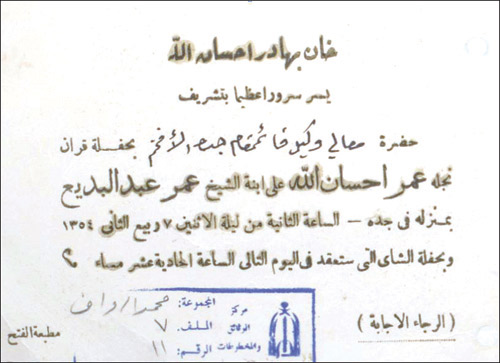 خان بهادر احسان الله
يسر سرورا عظيما بتشريف
حضرة معالي وكيل قائمقام جده الأفخم بحفلة قران
نجله عمر احسان الله على ابنة الشيخ عمر عبد البديع
بمنزله فى جده – الساعة الثانية من ليلة الاثنين ٧ ربيع الثانى ١٣٥٤
وبحفلة الشاى التى ستعقد فى اليوم التالى الساعة الحادية عشر مساء
( الرجاء الاجابة )
مطبعة الفتح
مركز الوثائق والمخطوطات
المجموعة: محمد الرواف
الملف: ٧
الرقم: ١١